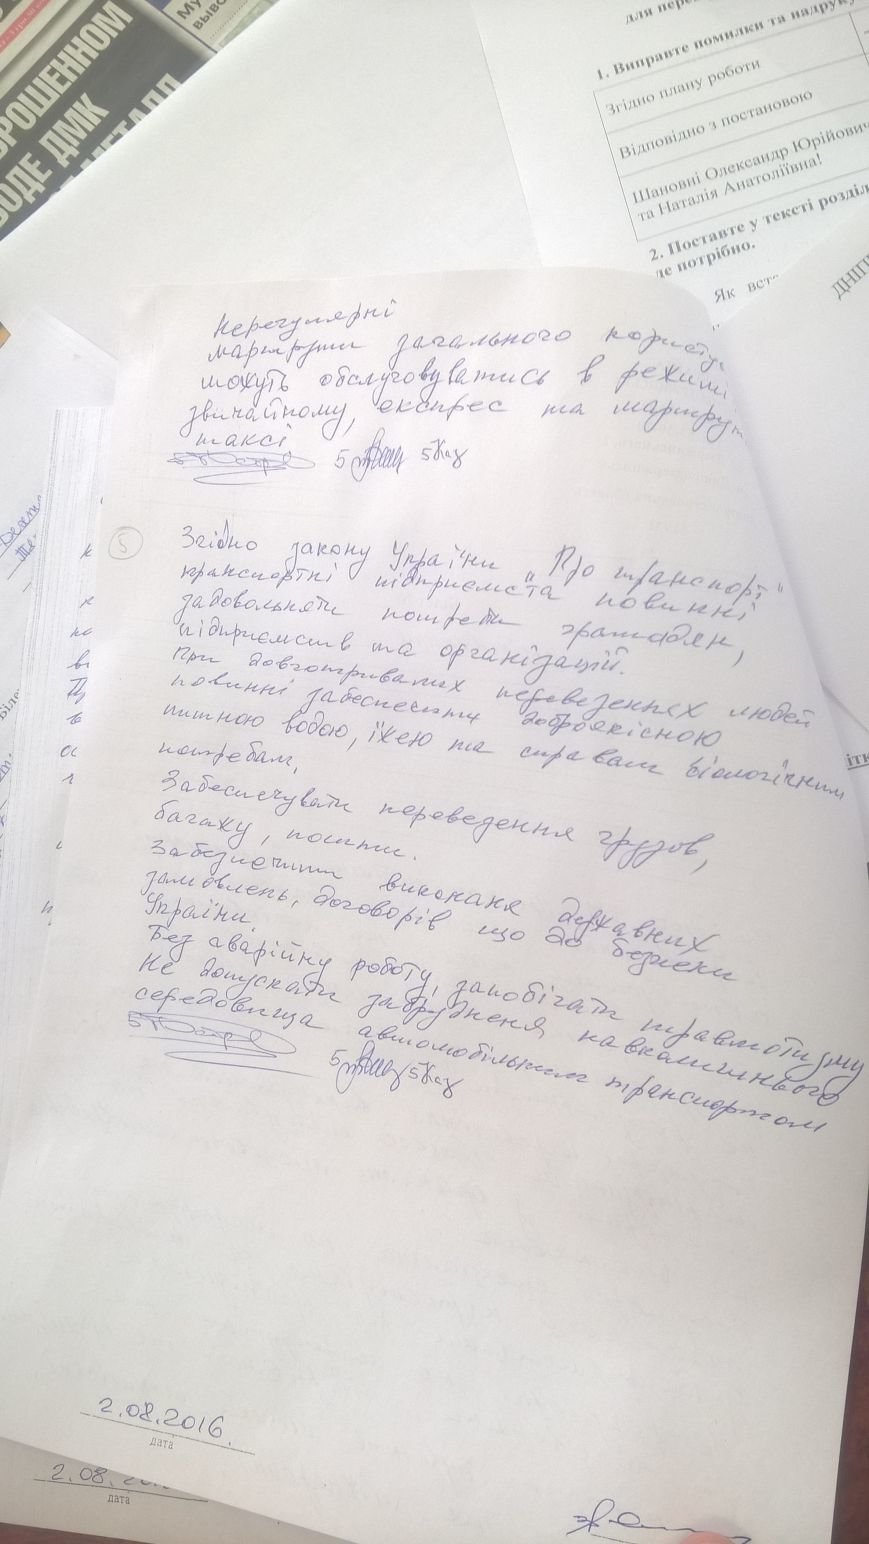 РОШЕННОМ
ВОДЕ ДМК
МУ
ВЫВО
для пере
1. Виправте помилки та надруку
Згідно плану роботи
Відповідно з постановою
Шановні Олександр Юрійович
та Наталія Анатоліївна!
2. Поставте у тексті розділ
де потрібно.
Як вст
ДНІП
Нерегулярні
маршрути загального користу
можуть обслуговуватись в режимі
звичайному, експрес та маршрут
таксі
5 5
5
Згідно закону України „Про транспорт"
транспортні підприємста повинні
задовольняти потреби громадян,
підприємств та організацій.
При довготривалих перевезеннях людей
повинні забеспечити доброякісною
питною водою, їжею та справам біологічним
потребам.
Забеспечувати переведення грузов,
багажу, пошти.
Забезпечити виконаня державних
замовлень, договорів що до безпеки
України
Без аварійну роботу, запобігати травмотизму
Не допускати забрудненя навколишнього
середовища автомобільним транспортом
5 5
2.08.2016.
дата
2.08.
дата